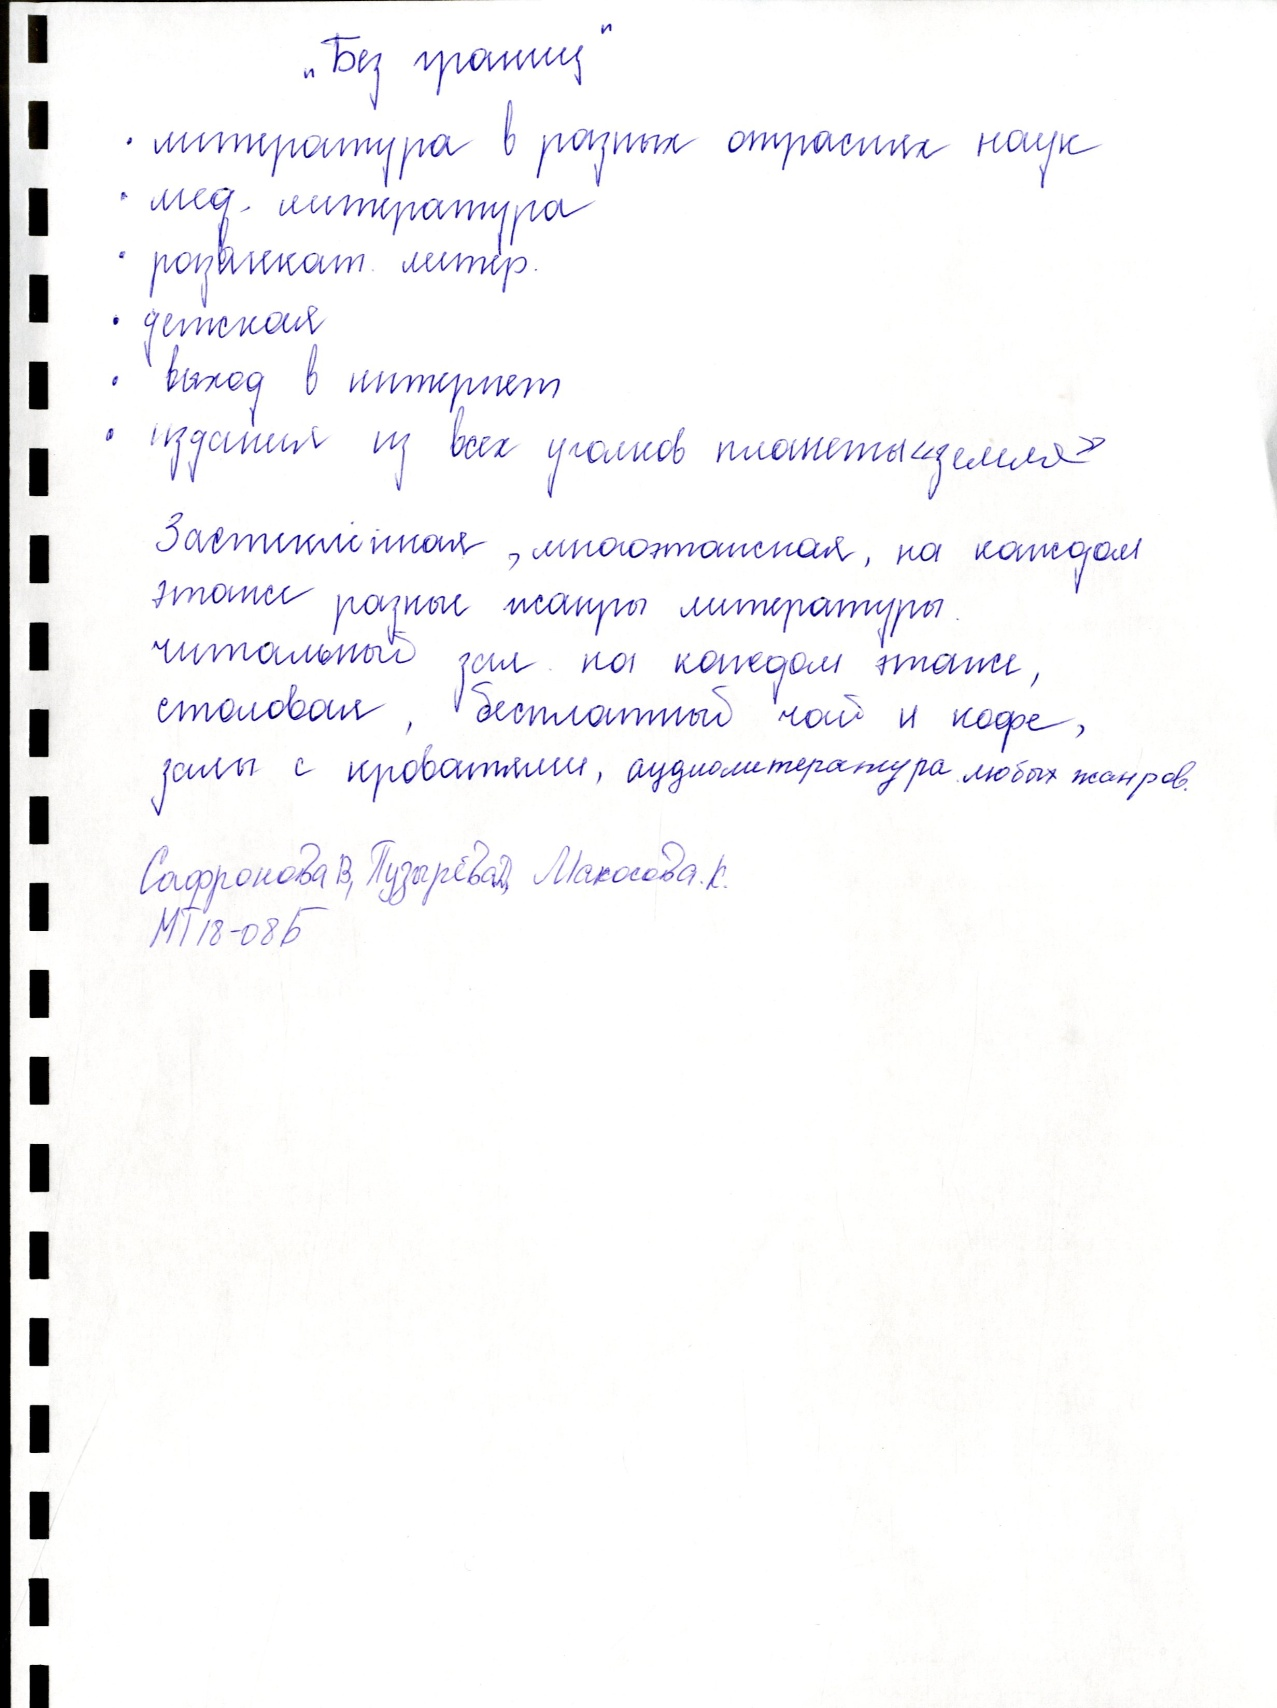 „Без границ"
• литература в разных отраслях наук
• мед. литература
• развлекат. литер.
• детская
• выход в интернет
• издания из всех уголков планеты «земля»
Застеклённая, многоэтажная, на каждом
этаже разные жанры литературы.
читальный зал на каждом этаже,
столовая, бесплатный чай и кофе,
залы с кроватями, аудиолитература любых жанров.
Сафронова В, Пузырёва Д, Макосова. К.
МТ18-08Б